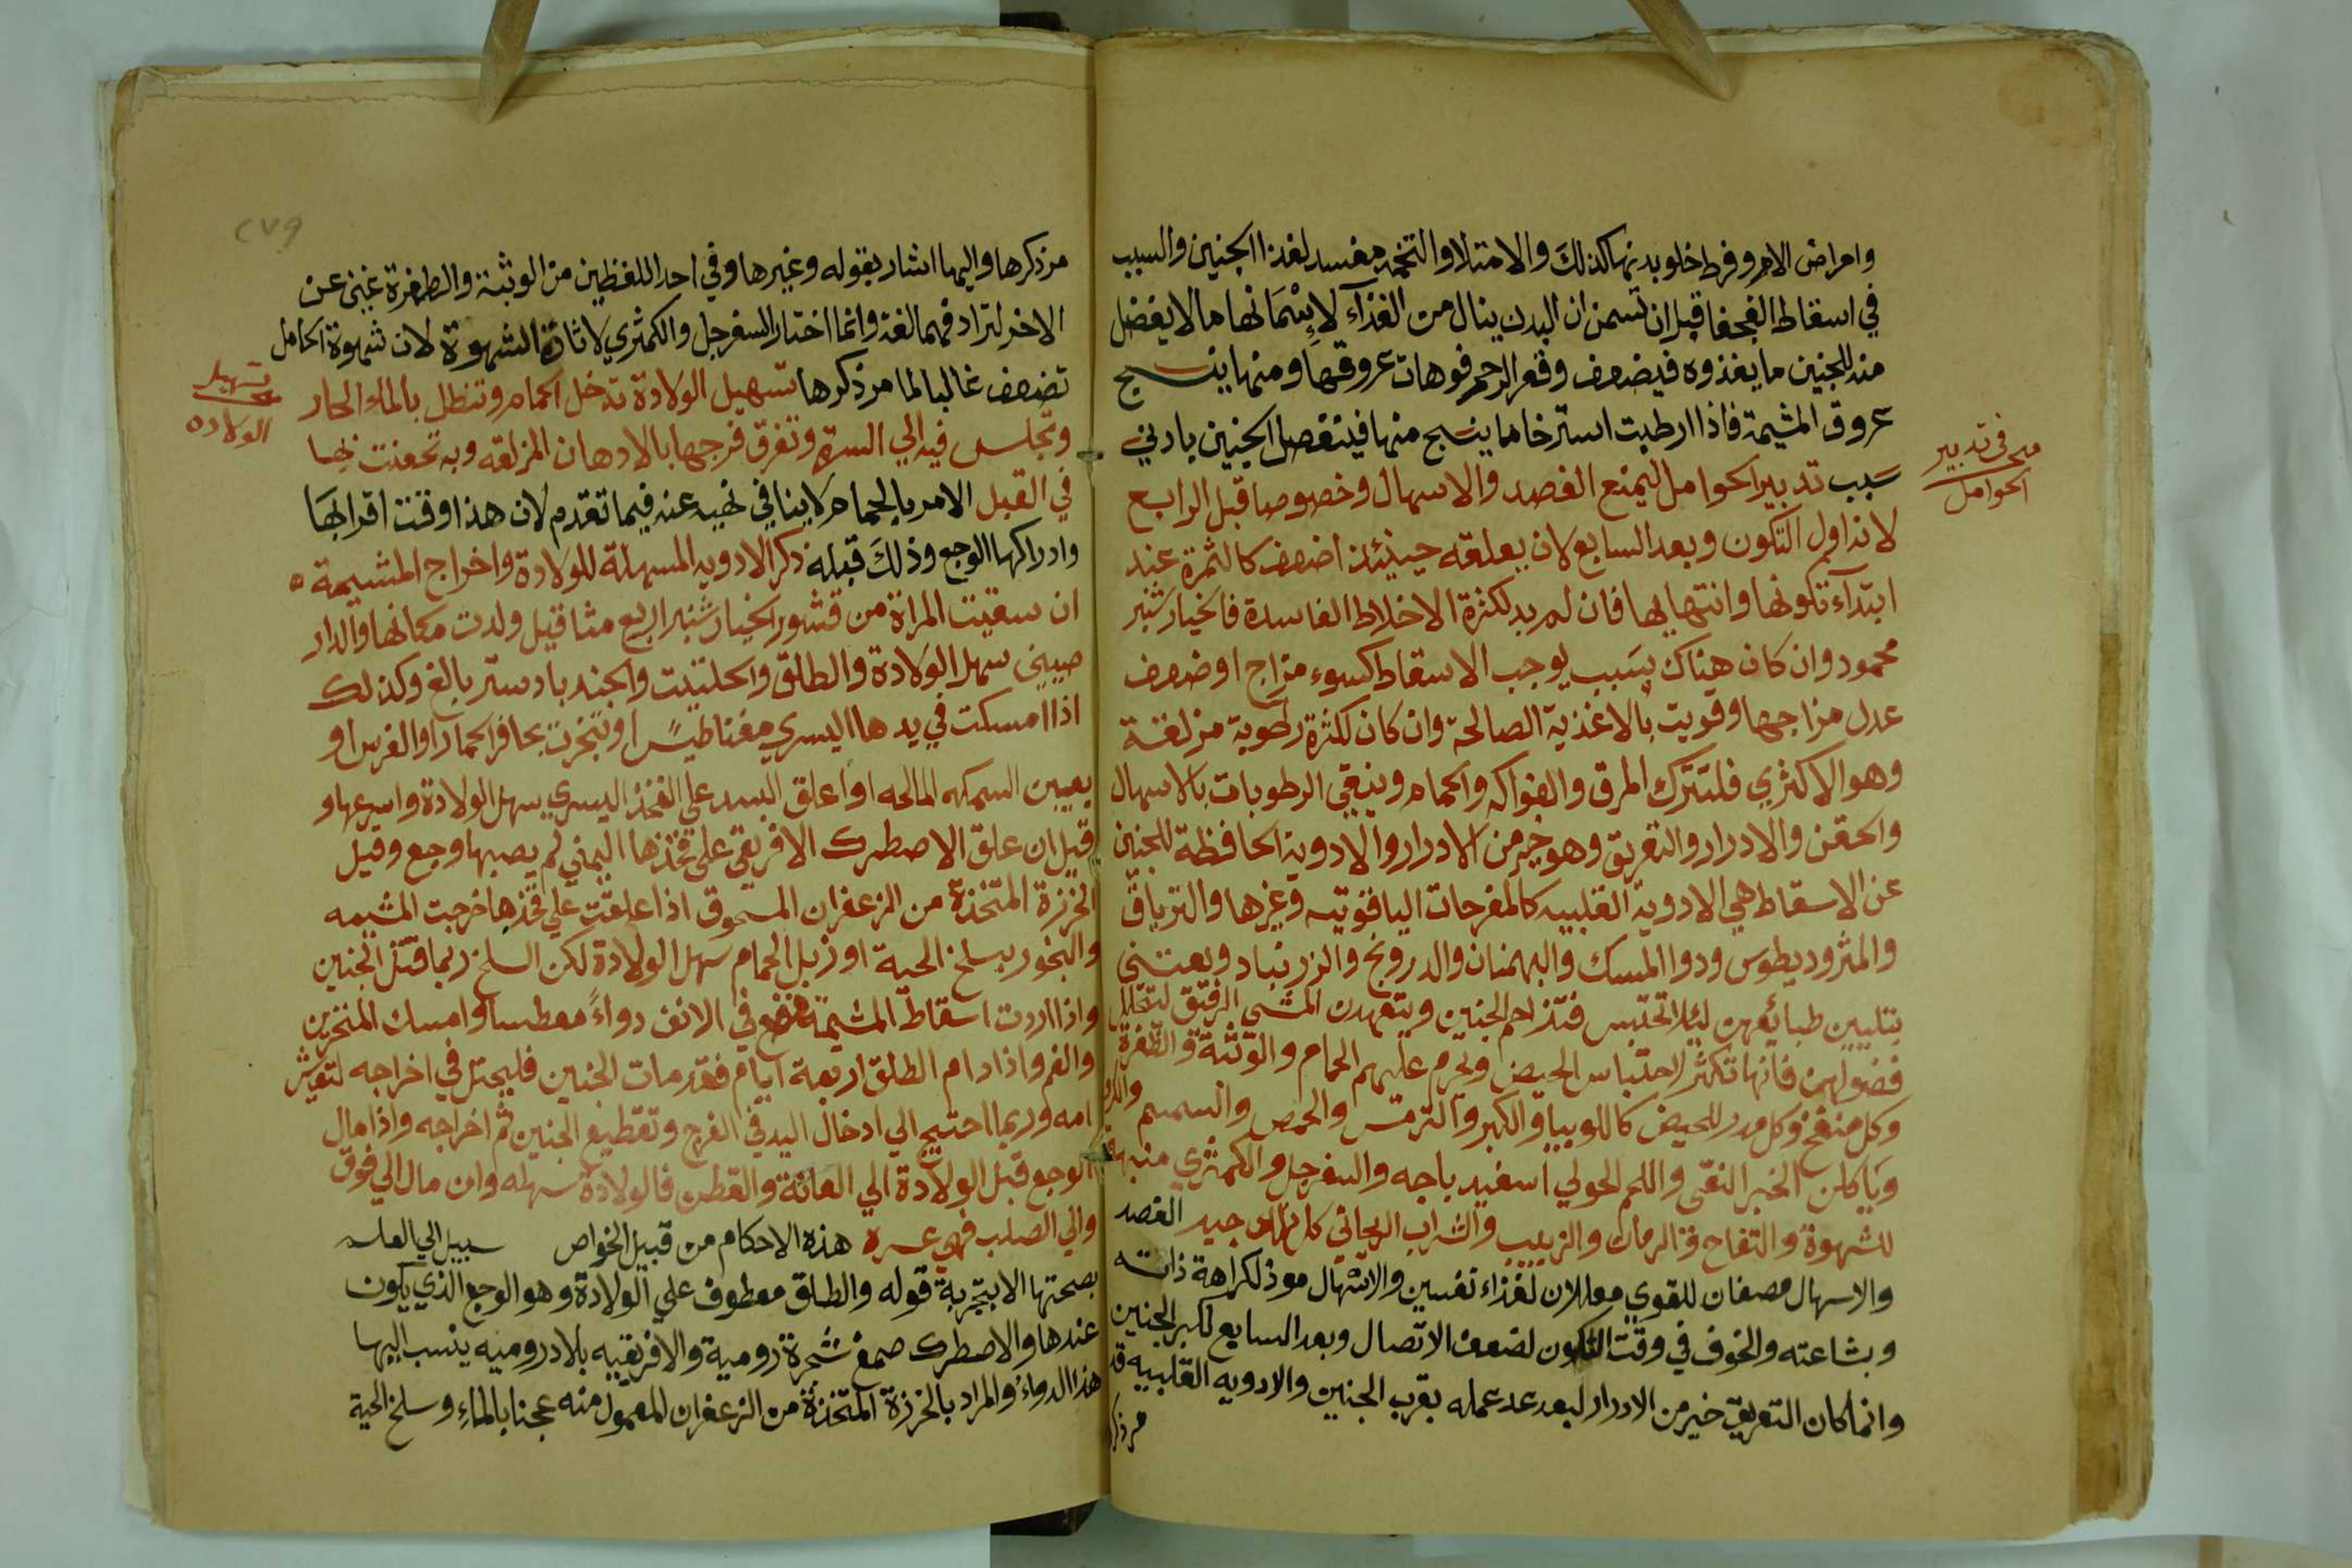 وامراض الامر وفرط خلو بدنها كذلك والامتلا والتخمه مفسد لغذا الجنين والسبب
في اسقاط العجفا قبل ان تسمن ان البدن ينال من الغذآء لإِسْمَانها ما لا يفضل
منه للجنين ما يغذوه فيضعف وقعر الرحم فوهات عروقها ومنها ينسج
عروق المشيمة فاذا ارطبت استرخا ما ينسج منها فينفصل الجنين بادني
سبب تدبير الحوامل ليمنع الفصد والاسهال وخصوصا قبل الرابع
لانه اول التكون وبعد السابع لان يعلقه حينئذ اضعف كالثمرة عند
ابتدآء تكونها وانتهايها فان لم بد لكثرة الاخلاط الفاسدة فالخيار شنبر
محمود وان كان هناك سبب يوجب الاسقاط كسوء مزاج او ضعف
عدل مزاجها وقويت بالاغذية الصالحة وان كان لكثرة رطوبة مزلقة
وهو الاكثري فلتترك المرق والفواكه والحمام وينقي الرطوبات بالاسهال
والحقن والادرار والتعريق وهو خير من الادرار والادوية الحافظة للجنين
عن الاسقاط هي الادوية القلبيه كالمفرحات الياقوتيه وغيرها والترياق
والمثروديطوس ودوا المسك والبهمنان والدرونج والزرنباد ويعتني
بتليين طبائعهن ليلا تحتبس فتزاحم الجنين ويتعهدن المشي الرفيق لتحلل
فضولهن فانها تكثر لاحتباس الحيض ويحرم عليهم الحمام والوثبة والطفرة
وكل منفخ وكل مدر للحيض كاللوبيا والكبر والترمس والحمص والسمسم
وياكلن الخبز النقي واللحم الحولي اسفيد باجه والسفرجل والكمثري منبها
للشهوة والتفاح والرمان والزبيب والشراب الريحاني كل نهار جيد الفصد
والاسهال مضعفان للقوي معللان لغذاء نفسين والاسهال موذ لكراهة ذاته
وبشاعته والخوف في وقت التكون لضعف الاتصال وبعد السابع لكبر الجنين
وانما كان التعريق خير من الادرار لبعد عد عمله بقرب الجنين والادويه القلبيه قد
مر ذكر
مبحث في تدبير
الحوامل
٢٧٩
مر ذكرها واليها اشار بقوله وغيرها وفي احد اللفظين من الوثبة والطفرة غني عن
الاخر لترادفهما لغة وانما اختار السفرجل والكمثري لاثارة الشهوة لان شهوة الحامل
تضعف غالبا لما مر ذكرها تسهيل الولادة تدخل الحمام وتنطل بالماء الحار
وتجلس فيه الي السرة وتغرق فرجها بالادهان المزلقه وبه تحقنت بها
في القبل الامر بالحمام لا ينافي نهيه عنه فيما تقدم لان هذا وقت اقرابها
وادراكها الوجع وذلك قبله ذكر الادويه المسهلة للولادة واخراج المشيمة
ان سقيت المراة من قشور الخيار شنبر اربع مثاقيل ولدت مكانها والدار
صيني سهل الولادة والطلق والحلتيت والجند بادستر بالغ وكذلك
اذا امسكت في يدها اليسري مغناطيسًا او تبخرت بحافر الحمار او الفرس او
بعين السمكه المالحه او اعلق البسد علي الفخذ اليسري يسهل الولادة واسرعها و
قيل ان علق الاصطرك الافريقي علي فخذها اليمني لم يصبها وجع وقيل
الخرزة المتخذة من الزعفران المسحوق اذا علقت علي فخذها خرجت المشيمه
والبخور بسلخ الحية او زبل الحمام سهل الولادة لكن السلخ ربما قتل الجنين
واذا اردت اسقاط المشيمة فضع في الانف دواءً معطسا وامسك المنخرين
والفم واذا دام الطلق اربعة ايام فقد مات الجنين فليحتل في اخراجه لتعيش
امه وربما احتيج الي ادخال اليد في الفرج وتقطيع الجنين ثم اخراجه واذا مال
الوجع قبل الولادة الي العانة والقطن فالولادة سهله وان مال الي فوق
والي الصلب فهي عسره هذه الاحكام من قبيل الخواص سبيل الي العلم
بصحتها الا بتجربة قوله والطلق معطوف علي الولادة وهو الوجع الذي يكون
عندها والاصطرك صمغ شجرة رومية والافريقيه بلاد روميه ينسب اليها
هذا الدواء والمراد بالخرزة المتخذة من الزعفران المعمول منه عجنا بالماء وسلخ الحية
تسهيل
الولاده